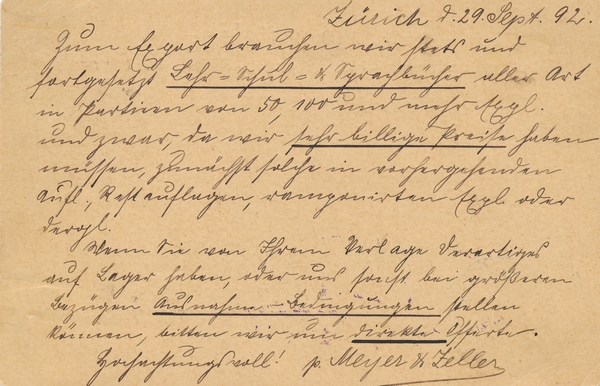 Zürich d. 29. Sept. 92.
Zum Export brauchen wir stets und
fortgesetzt Lehr-Schul-& Sprachbücher aller Art
in Partieen von 50, 100 und mehr Expl.
und zwar, da wir sehr billige Preise haben
müssen, zunächst solche in vorhergehenden
Aufl., Restauflagen, ramponirten Expl. oder
dergl.
Wenn Sie von Ihrem Verlage Derartiges
auf Lager haben, oder uns sonst bei größeren
Bezügen Ausnahme-Bedingungen stellen
können, bitten wir um direkte Offerte.
Hochachtungsvoll! p. Meyer & Zeller